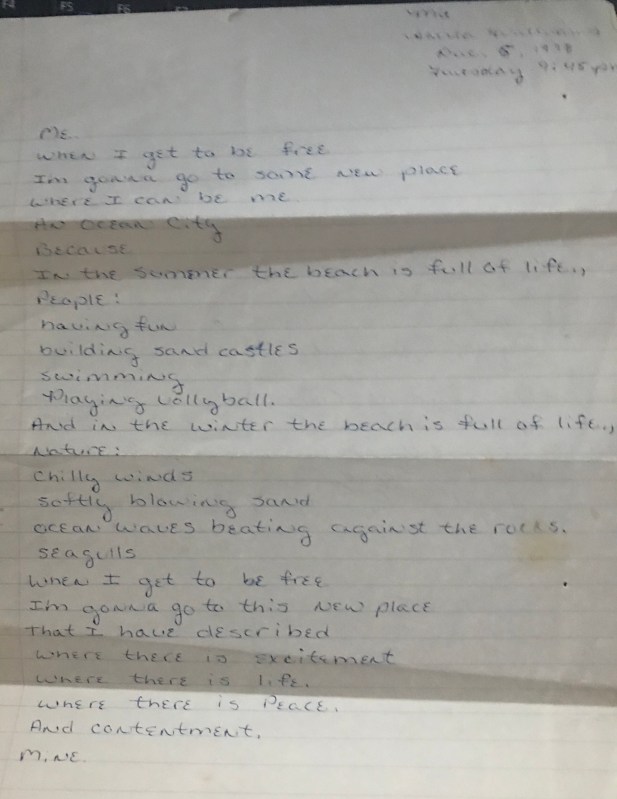 F4 F5 F6
Dec. 5, 1978
9:45 pm
Me.
When I get to be free
Im gonna go to some new place
where I can be me
An Ocean City
Because
In the summer the beach is full of life.,
People:
having fun
building sand castles
swimming
Playing vollyball.
And in the winter the beach is full of life.,
Nature:
Chilly winds
softly blowing sand
ocean waves beating against the rocks.
seagulls
When I get to be free
Im gonna go to this new place
That I have described
where there is excitement
where there is life.
where there is Peace.
And contentment.
Mine.